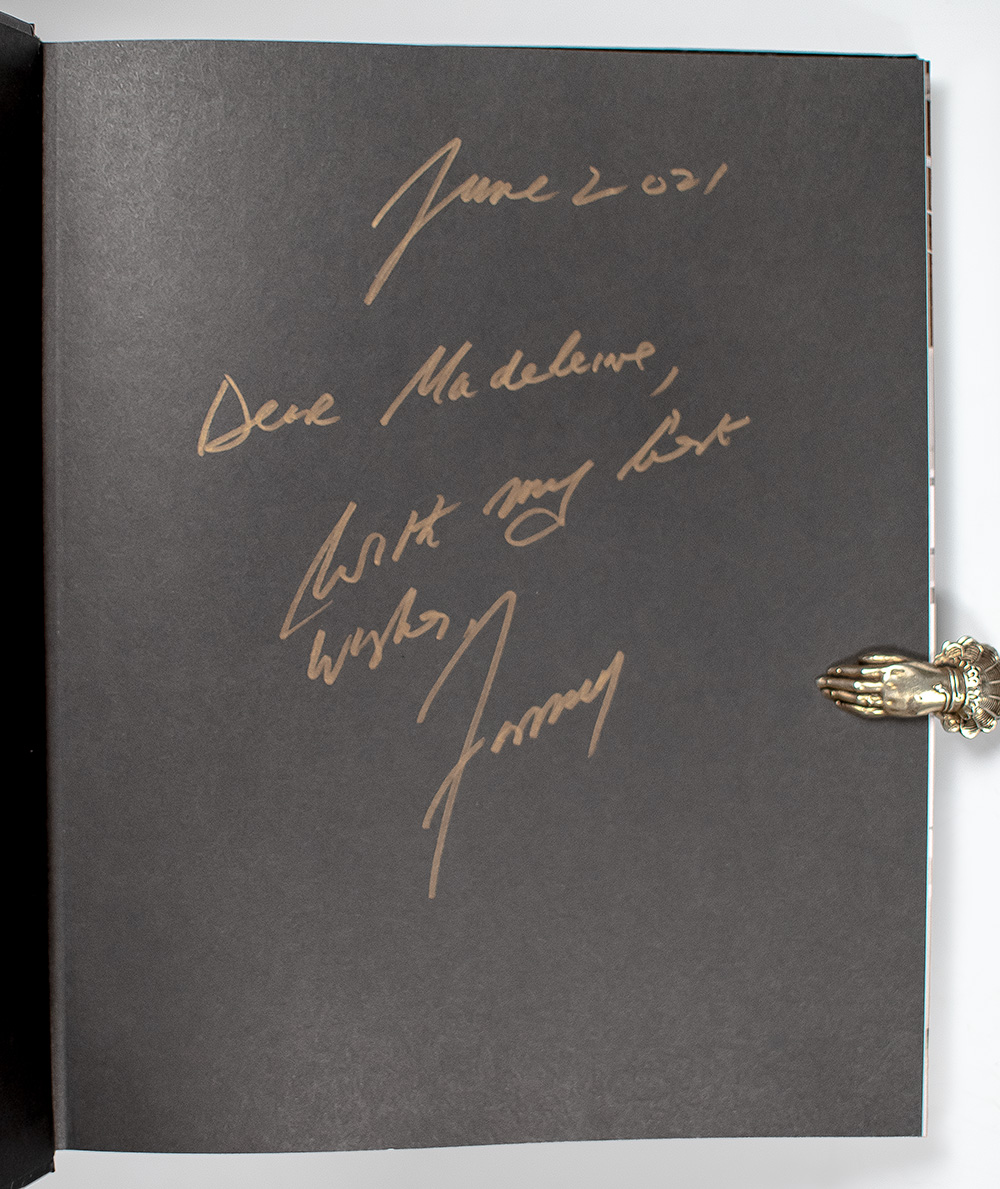 June 2021
Dear Madeleine,
With my best
wishes,